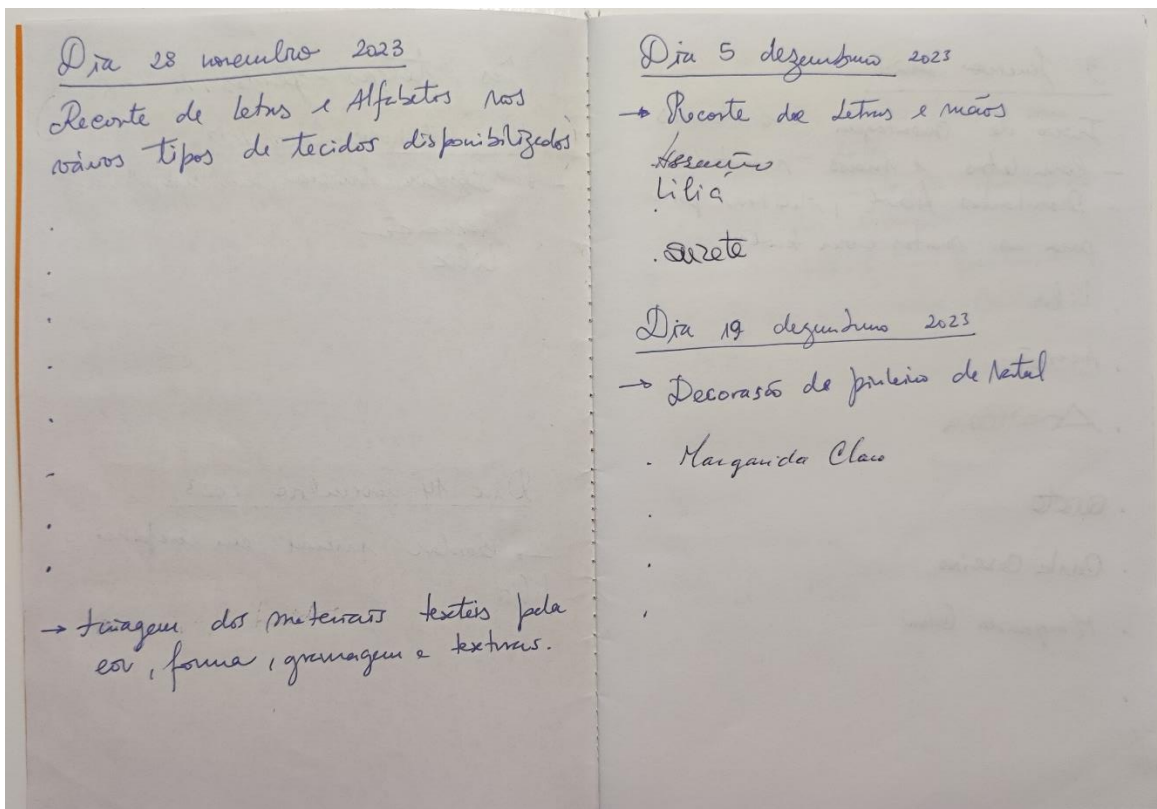 Dia 28 novembro 2023
Recorte de letras e Alfabetos nos
vários tipos de tecidos disponibilizados
→ triagem dos materiais texteis pela
cor, forma, gramagem e texturas.
Dia 5 dezembro 2023
→ Recorte de Letras e mãos
Assunção
Liliá
. Suzete
Dia 19 dezembro 2023
→ Decoração de pinheiro de Natal
. Margarida Claro